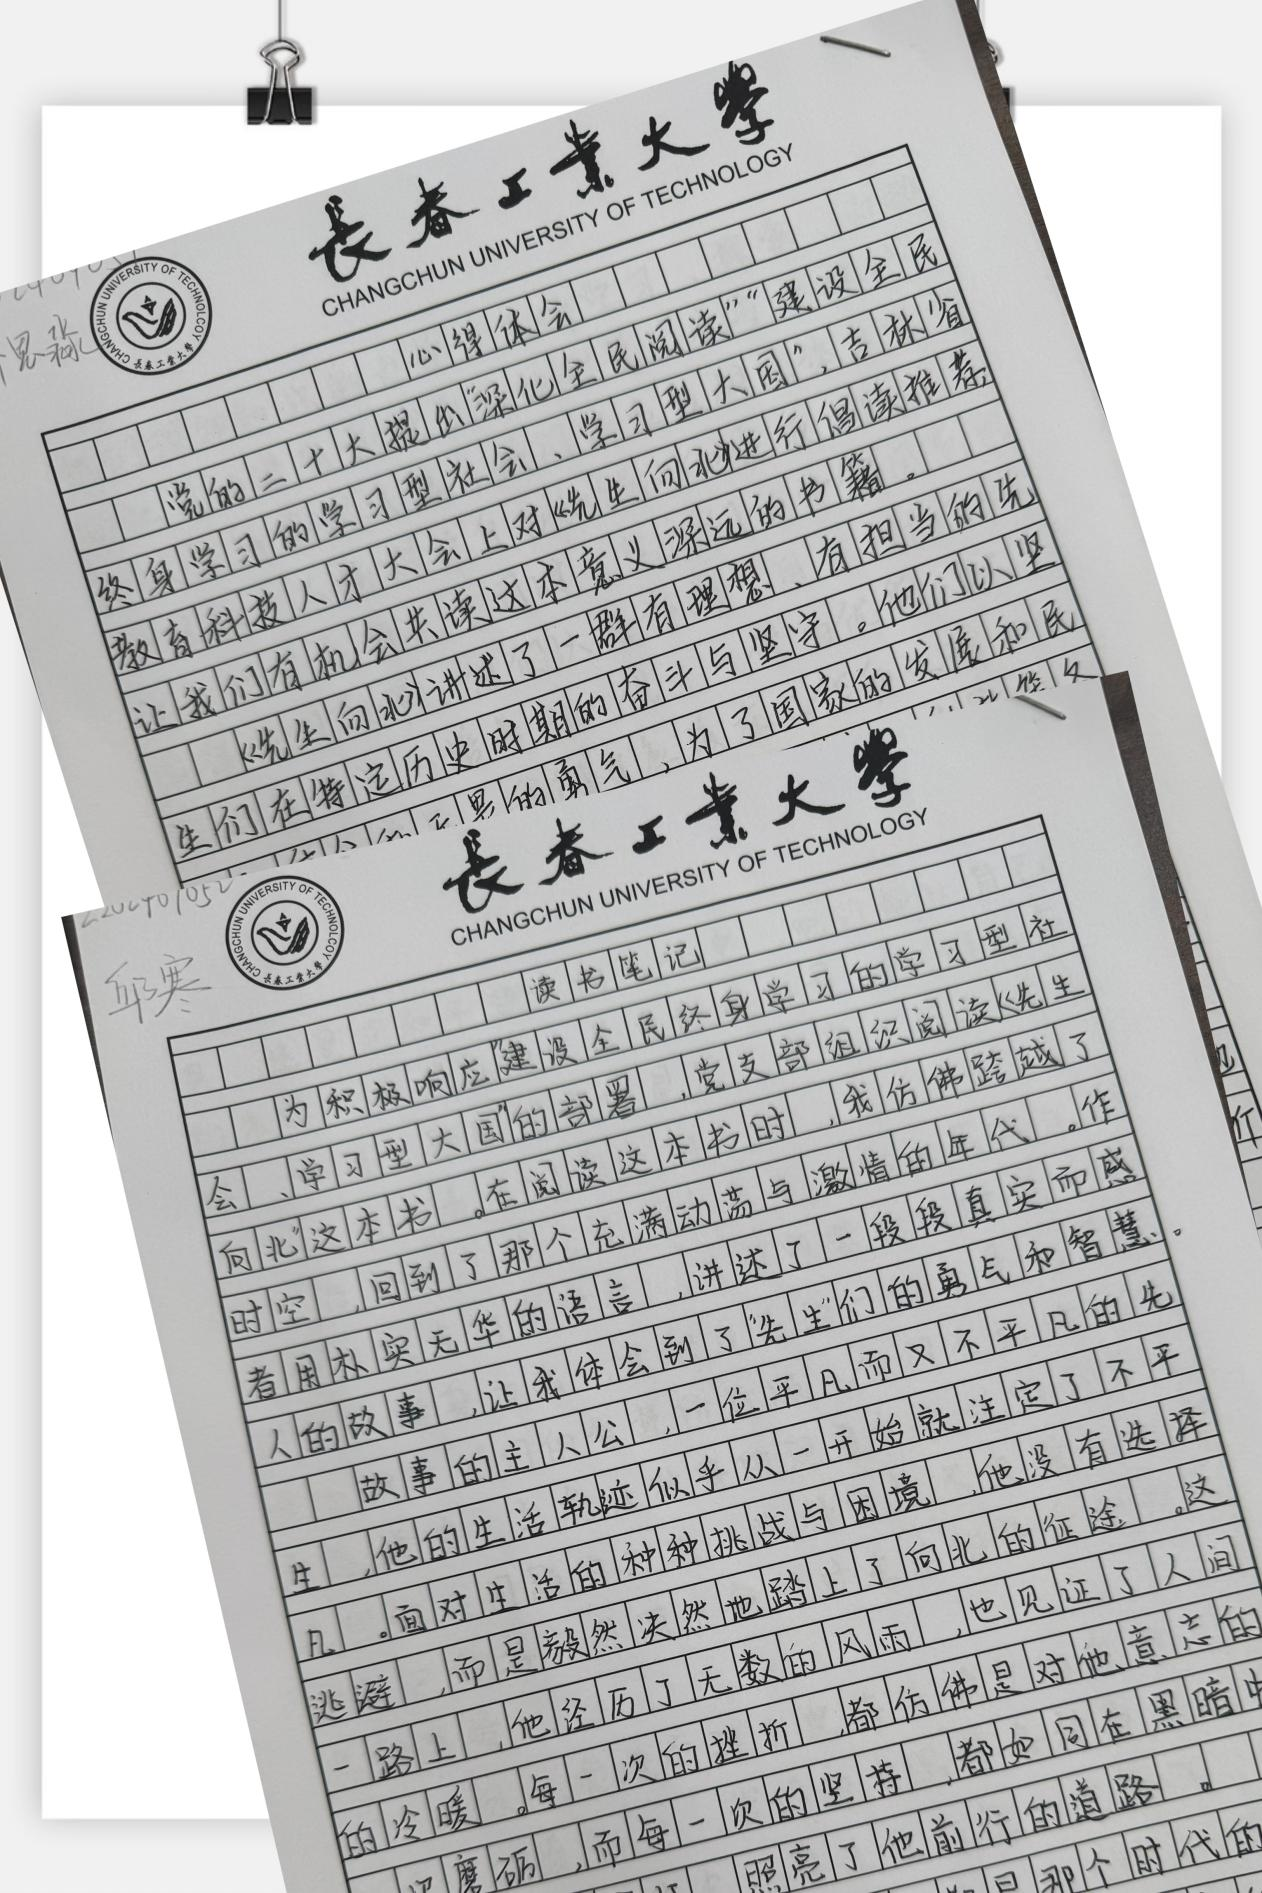 長春工業大學
CHANGCHUN UNIVERSITY OF TECHNOLOGY
CHANGCHUN UNIVERSITY OF TECHNOLCOY
長春工業大學
心得体会
党的二十大提出“深化全民阅读”“建设全民
终身学习的学习型社会、学习型大国”，吉林省
教育科技人才大会上对《先生向北》进行倡读推荐，
让我们有机会共读这本意义深远的书籍。
《先生向北》讲述了一群有理想、有担当的先
生们在特定历史时期的奋斗与坚守。他们以坚
的勇气，为了国家的发展和民
長春工業大學
CHANGCHUN UNIVERSITY OF TECHNOLOGY
CHANGCHUN UNIVERSITY OF TECHNOLCOY
長春工業大學
邱寒
读书笔记
为积极响应“建设全民终身学习的学习型社
会、学习型大国”的部署，党支部组织阅读《先生
向北》这本书。在阅读这本书时，我仿佛跨越了
时空，回到了那个充满动荡与激情的年代。作
者用朴实无华的语言，讲述了一段段真实而感
人的故事，让我体会到了“先生”们的勇气和智慧。
故事的主人公，一位平凡而又不平凡的先
生，他的生活轨迹似乎从一开始就注定了不平
凡。面对生活的种种挑战与困境，他没有选择
逃避，而是毅然决然地踏上了向北的征途。这
一路上，他经历了无数的风雨，也见证了人间
的冷暖。每一次的挫折，都仿佛是对他意志的
磨砺，而每一次的坚持，都如同在黑暗中
照亮了他前行的道路。
是那个时代的